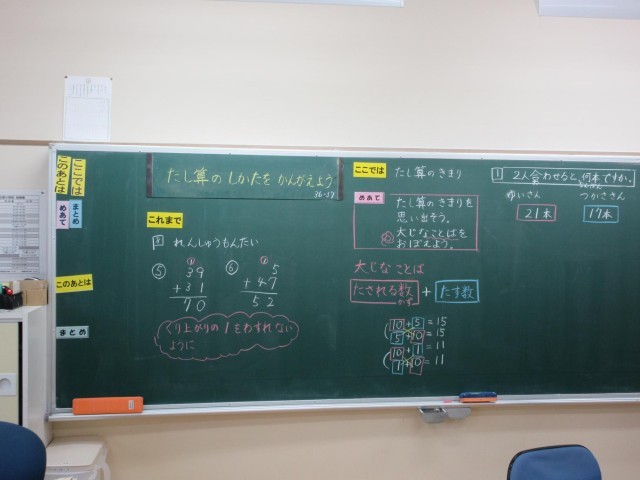 ここでは
このあとは
まとめ
めあて
このあとは
まとめ
たし算の しかたを かんがえよう
36-37
これまで
れんしゅうもんだい
⑤
39
+31
70
⑥
5
+47
52
くり上がりの1をわすれない
ように
ここでは
たし算のきまり
めあて
たし算のきまりを
思い出そう。
大じなことばを
おぼえよう。
大じなことば
たされる数 + たす数
かず
10+5=15
5+10=15
10+1=11
1+10=11
1 2人合わせると、何本ですか。
ゆいさん
21本
つかささん
17本